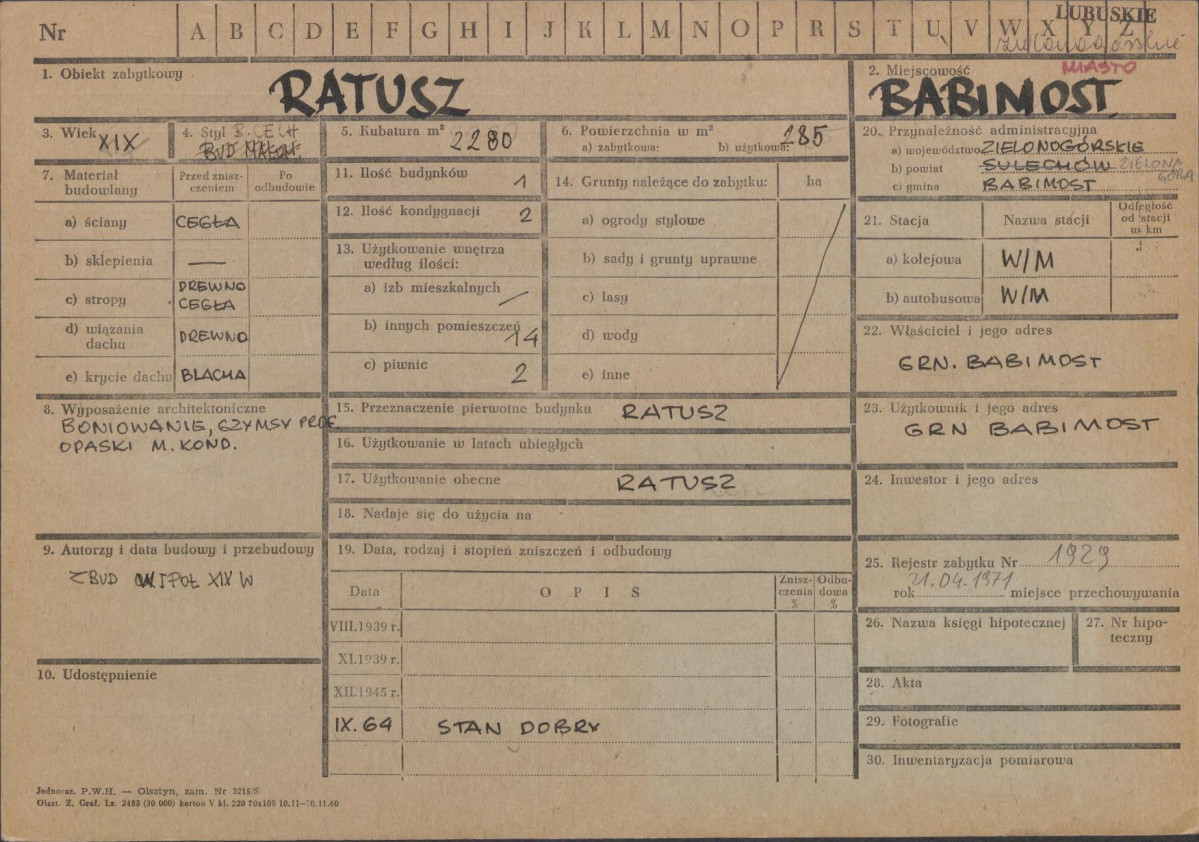 Nr A B C D E F G H I J K L M N O P R S T U V W X Y Z
LUBUSKIE
zielonogórskie
1. Obiekt zabytkowy
RATUSZ
2. Miejscowość
MIASTO
BABIMOST
3. Wiek XIX
4. Styl B. CECH
BUD MAŁOM.
5. Kubatura m³ 2280
6. Powierzchnia w m²
a) zabytkowa: b) użytkowa: 285
20. Przynależność administracyjna
a) województwo ZIELONOGÓRSKIE
b) powiat SULECHÓW ZIELONA GÓRA
c) gmina BABIMOST
7. Materiał budowlany
Przed zniszczeniem
Po odbudowie
a) ściany CEGŁA
b) sklepienia —
c) stropy DREWNO
CEGŁA
d) wiązania dachu DREWNO
e) krycie dachu BLACHA
11. Ilość budynków 1
12. Ilość kondygnacji 2
13. Użytkowanie wnętrza
według ilości:
a) izb mieszkalnych —
b) innych pomieszczeń 14
c) piwnic 2
14. Grunty należące do zabytku: ha
a) ogrody stylowe
b) sady i grunty uprawne
c) lasy
d) wody
e) inne
21. Stacja
Nazwa stacji
Odległość od stacji w km
a) kolejowa W/M
b) autobusowa W/M
22. Właściciel i jego adres
GRN. BABIMOST
8. Wyposażenie architektoniczne
BONIOWANIE, GZYMSY PROF.
OPASKI M. KOND.
15. Przeznaczenie pierwotne budynku RATUSZ
16. Użytkowanie w latach ubiegłych
17. Użytkowanie obecne RATUSZ
18. Nadaje się do użycia na
23. Użytkownik i jego adres
GRN BABIMOST
24. Inwestor i jego adres
9. Autorzy i data budowy i przebudowy
ZBUD W I POŁ XIX W
19. Data, rodzaj i stopień zniszczeń i odbudowy
Data
O P I S
Zniszczenia %
Odbudowa %
VIII.1939 r.
XI.1939 r.
XII.1945 r.
IX. 64 STAN DOBRY
25. Rejestr zabytku Nr 1929
rok 21.04.1971 miejsce przechowywania
26. Nazwa księgi hipotecznej
27. Nr hipoteczny
10. Udostępnienie
28. Akta
29. Fotografie
30. Inwentaryzacja pomiarowa
Jednoraz. P.W.H. — Olsztyn, zam. Nr 3215/S
Olszt. Z. Graf. Lz. 2485 (30 000) karton V kl. 220 70x100 10.11—30.11.60